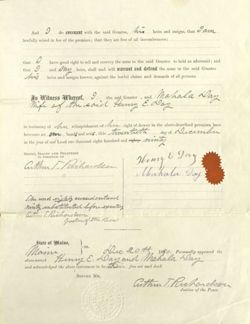 And I do covenant with the said Grantee, his heirs and assigns, that I am
lawfully seized in fee of the premises; that they are free of all incumbrances;
that I have good right to sell and convey the same to the said Grantee to hold as aforesaid; and
that I and my heirs, shall and will warrant and defend the same to the said Grantee
his heirs and assigns forever, against the lawful claims and demands of all persons
In Witness Whereof, I the said and Mahala Day
Wife of the said Henry E. Day
in testimony of relinquishment of right of dower in the above-described premises, have
hereunto set hand and seal this twentieth day of December
in the year of our Lord one thousand eight hundred and ninety
Signed, Sealed and Delivered
in presence of
Arthur T. Richardson
Henry E. Day
Mahala Day
Arthur T. Richardson
Justice of the Peace
State of Maine,
Dec 20th 1890. Personally appeared the
Henry E. Day and Mahala Day
and acknowledged the above instrument to be their free act and deed.
Before Me,
Arthur T. Richardson
Justice of the Peace